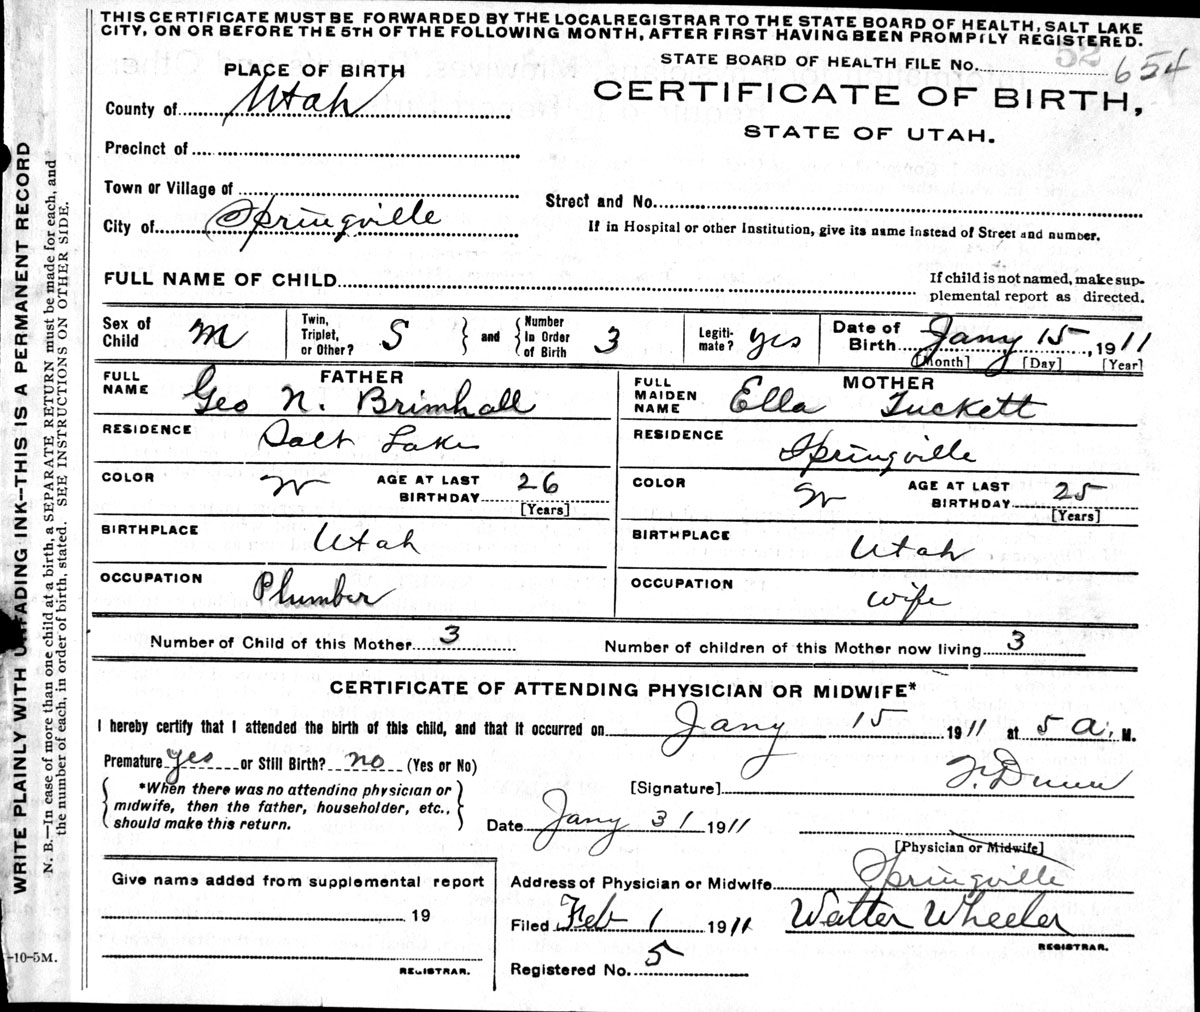 THIS CERTIFICATE MUST BE FORWARDED BY THE LOCAL REGISTRAR TO THE STATE BOARD OF HEALTH, SALT LAKE
CITY, ON OR BEFORE THE 5TH OF THE FOLLOWING MONTH, AFTER FIRST HAVING BEEN PROMPTLY REGISTERED.
STATE BOARD OF HEALTH FILE NO. 52 654
PLACE OF BIRTH
CERTIFICATE OF BIRTH,
County of Utah
STATE OF UTAH.
Precinct of
Town or Village of
Street and No.
City of Springville
If in Hospital or other Institution, give its name instead of Street and number.
FULL NAME OF CHILD
If child is not named, make sup-
plemental report as directed.
Sex of Child M
Twin, Triplet, or Other? S
and
Number in Order of Birth 3
Legiti-mate? yes
Date of Birth Jany 15, 1911
[Month] [Day] [Year]
FATHER
FULL NAME Geo N. Brimhall
RESIDENCE Salt Lake
COLOR W AGE AT LAST BIRTHDAY 26 [Years]
BIRTHPLACE Utah
OCCUPATION Plumber
MOTHER
FULL MAIDEN NAME Ella Tuckett
RESIDENCE Springville
COLOR W AGE AT LAST BIRTHDAY 25 [Years]
BIRTHPLACE Utah
OCCUPATION wife
Number of Child of this Mother 3
Number of children of this Mother now living 3
CERTIFICATE OF ATTENDING PHYSICIAN OR MIDWIFE*
I hereby certify that I attended the birth of this child, and that it occurred on Jany 15 1911 at 5 a. M.
Premature yes or Still Birth? no (Yes or No)
*When there was no attending physician or
midwife, then the father, householder, etc.,
should make this return.
[Signature] F. Dunn
Date Jany 31 1911
[Physician or Midwife]
Give name added from supplemental report
19
REGISTRAR.
Address of Physician or Midwife Springville
Filed Feb 1 1911 Walter Wheeler
REGISTRAR.
Registered No. 5
WRITE PLAINLY WITH UNFADING INK—THIS IS A PERMANENT RECORD
N. B.—In case of more than one child at a birth, a SEPARATE RETURN must be made for each, and
the number of each, in order of birth, stated. SEE INSTRUCTIONS ON OTHER SIDE.
-10-5M.